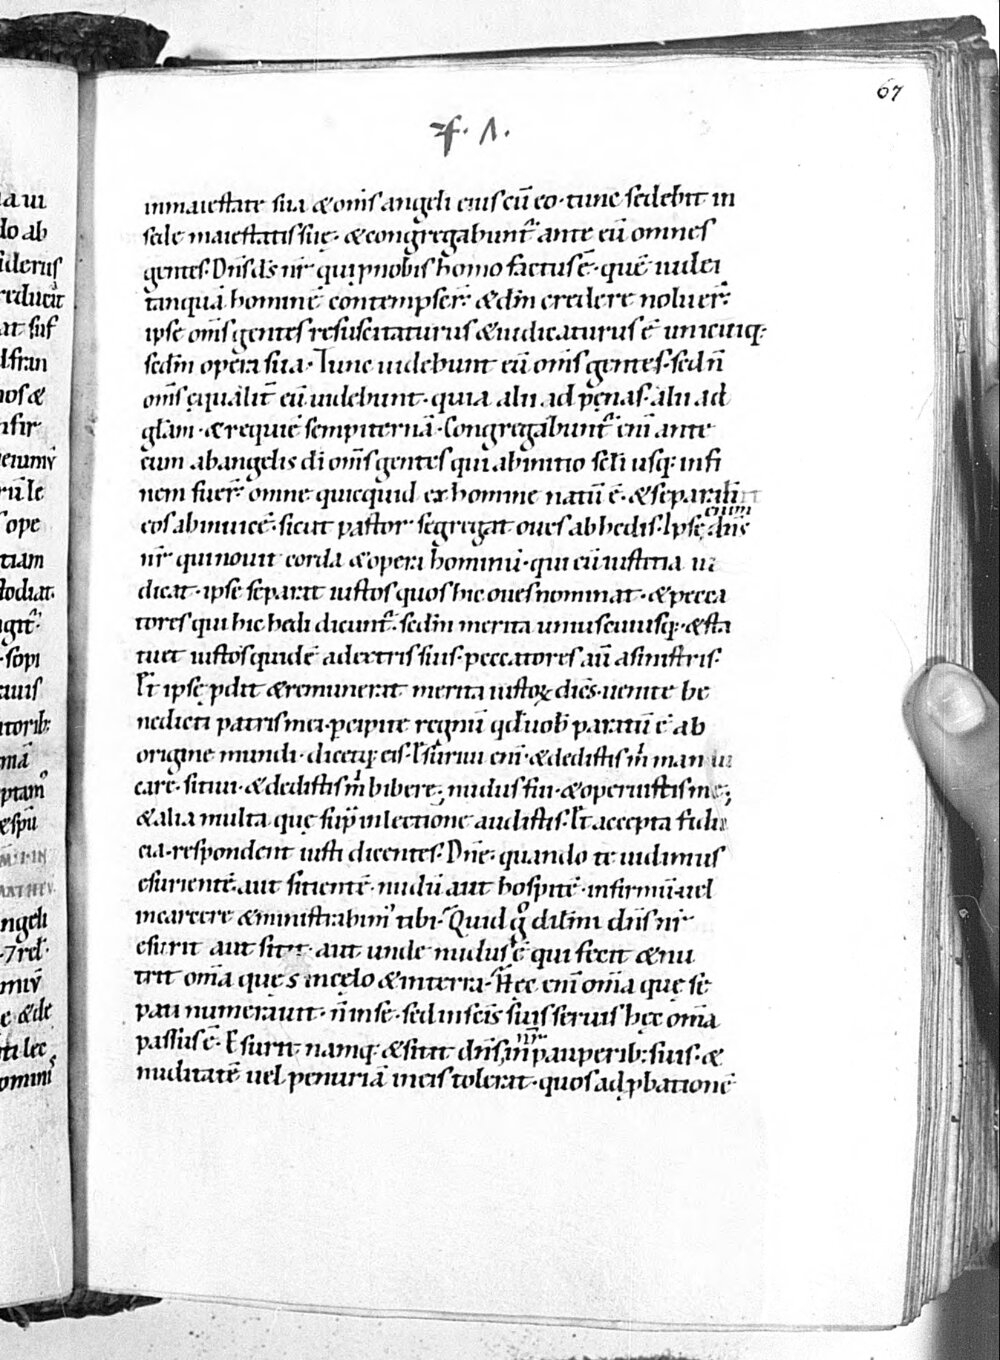 67
F. Λ.
inmaiestate sua & om̄s angeli eius cū eo· tunc sedebit in
sede maiestatis suę· & congregabunt̄ ante eū omnes
gentes· Dn̄s ds̄ nr̄ qui ꝓnobis homo factus ē· quē uidei
tanquā hominē contempser̄· & dīm credere noluer̄·
ipse om̄s gentes resuscitaturus & iudicaturus ē unicuiq·
sedm̄ opera sua· Tunc uidebunt eū om̄s gentes· sed n̄
om̄s ęqualit̄ eū uidebunt· quia alii ad pęnas· alii ad
gl̄am· & requiē sempiternā· Congregabunt̄ enī ante
eum abangelis dī om̄s gentes qui abinitio sc̄li usq; infi
nem fuer̄ omne quicquid ex homine natū ē· & separabit
eos abinuicē· sicut pastor segregat oues ab hedis· Ipse enim dn̄s
nr̄ qui nouit corda & opera hominū· qui cū iustitia iu
dicat· ipse separat iustos quos hic oues nominat· & pecca
tores qui hic hedi dicunt̄· sedm̄ merita uniuscuiusq;· & sta
tuet iustos quidē adextris suis· peccatores aū asinistris·
Et ipse ꝓdit & remunerat merita iustoꝝ dicēs· uenite be
nedicti patris mei· percipite regnū qd̄ uob̄ paratū ē ab
origine mundi· dicetq; eis· Esuriui enī· & dedistis m̄ man du
care· sitiui· & dedistis m̄ bibere; nudus fui· & operuistis me;
& alia multa quę sup̄ inlectione audistis· Et accepta fidu
cia· respondent iusti dicentes· Dn̄e· quando te uidimus
esurientē· aut sitientē· nudū aut hospitē· infirmū· uel
incarcere & ministrabim᷒ tibi· Quid g̊ dilm̄i dn̄s nr̄
esurit aut sitit· aut unde nudus ē qui fecit & nu
trit om̄a quę s̄ incęlo & interra· Hęc enī om̄a quę se
pati numerauit· n̄ inse· sed insc̄is suis seruis hęc om̄a
passus ē· Esurit namq; & sitit dn̄s nr̄ in pauperib; suis· &
nuditatē uel penuriā ineis tolerat· quos ad ꝓbationē